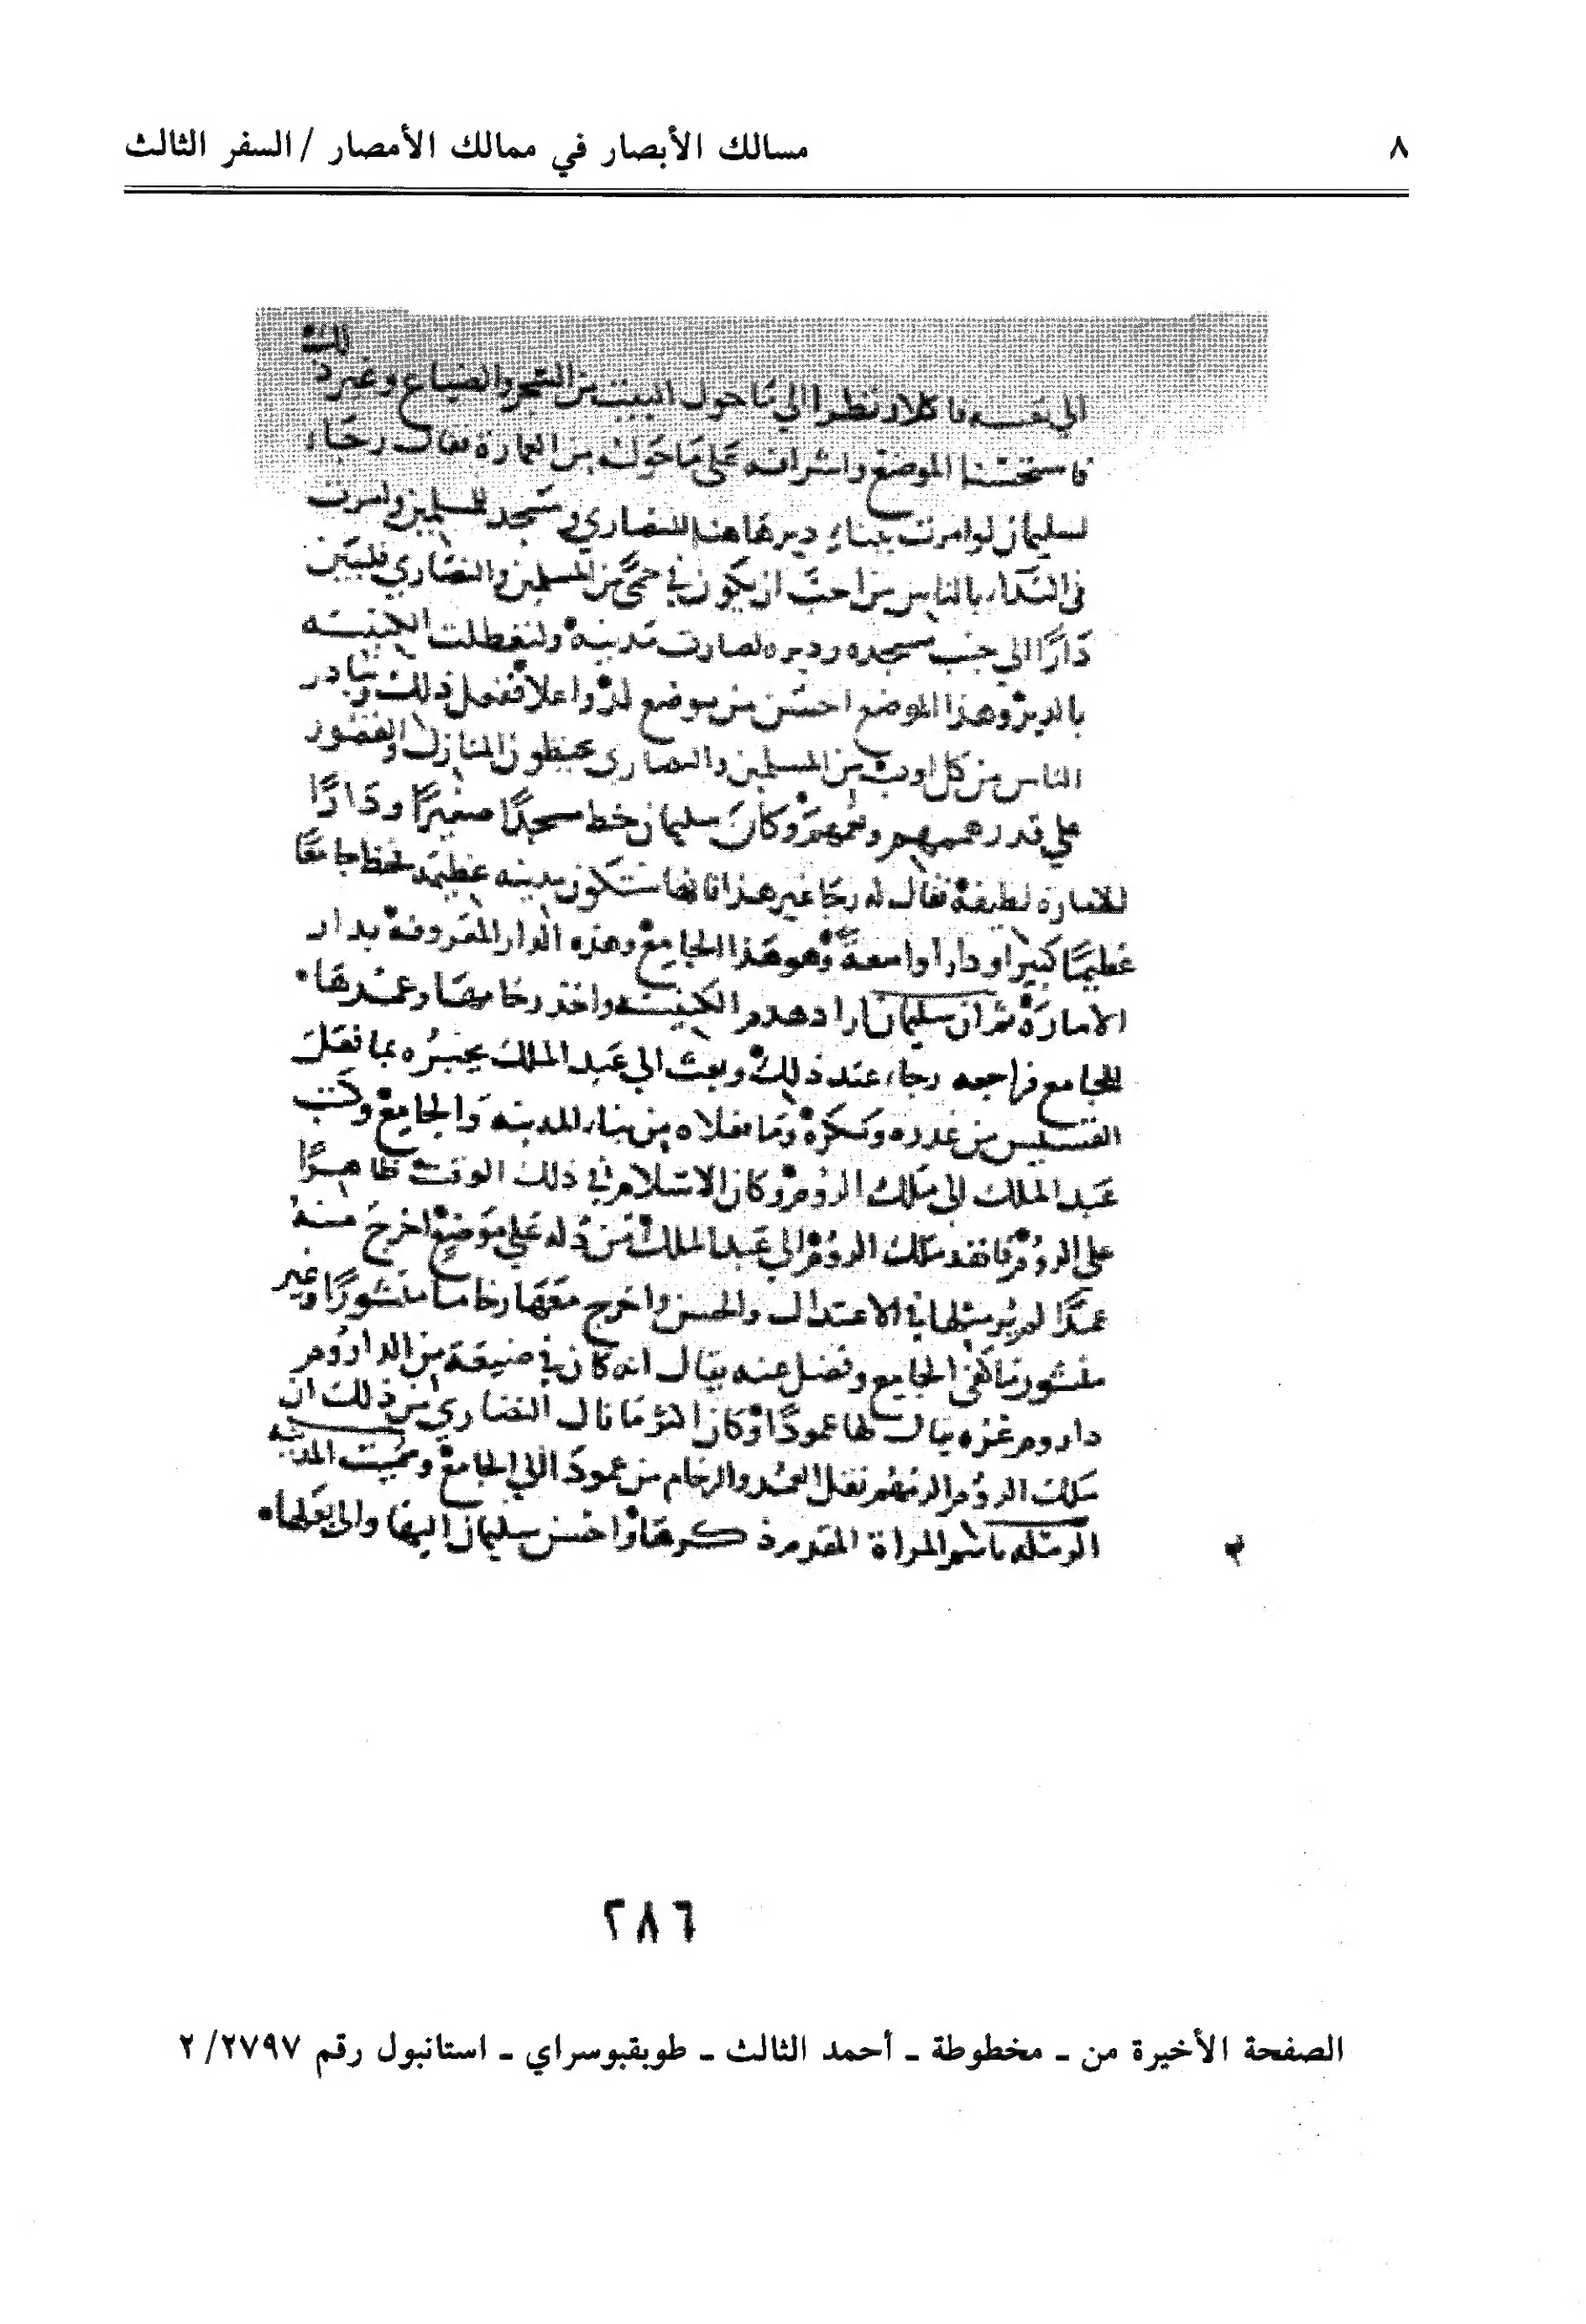 ٨
مسالك الأبصار في ممالك الأمصار / السفر الثالث
الي نفسه فاكلا ونظرا الي ما حول البيت من الشجر والضياع وغير ذلك
فاستحسنا الموضع واشرافه علي ما حوله من العمارة فقال رجاء
لسليمان لو امرت ببناء دير هاهنا للنصاري ومسجد للمسلمين وامرت
في النداء بالناس من احب ان يكون في حمي من المسلمين والنصاري فليبن
دارا الي جنب مسجده وديره لصارت مدينه ولتعطلت الكنيسه
بالدير وهذا الموضع احسن من موضع لد واعلا ففعل ذلك وتبادر
الناس من كل اوب من المسلمين والنصاري يخيطون المنازل والقصور
علي قدر هممهم ونعمهم وكان سليمان خط مسجدا صغيرا ودارا
للامارة لطيفة فقال له رجا غير هذا فانها ستكون مدينه عظيمه فخط جامعا
عظيما كبيرا ودارا واسعة وهو هذا الجامع وهذه الدار المعروفة بدار
الامارة ثم ان سليمان اراد هدم الكنيسه واخذ رخامها وعمدها
للجامع فراجعه رجاء عند ذلك وبعث الي عبد الملك يخبره بما فعل
القسيس من غدره ومكره وما فعلاه من بناء المدينه والجامع وكتب
عبد الملك الي ملك الروم وكان الاسلام في ذلك الوقت ظاهرا
علي الروم فانفد ملك الروم الي عبد الملك من دله علي موضع اخرج منه
عمدا لم ير مثلها في الاعتدال والحسن واخرج معها رخاما منشورا وغير
منشور ما كفي الجامع وفضل عنه يقال انه كان في ضيعة من الداروم
داروم غزه يقال لها عمودا وكان اشر ما نال النصاري من ذلك ان
ملك الروم الزمهم نقل العمد والرخام من عمودا الي الجامع وسميت المدينه
الرمله باسم المراة المقدم ذكرها واحسن سليمان اليها والي بعلها
٢٨٦
الصفحة الأخيرة من ـ مخطوطة ـ أحمد الثالث ـ طوبقبوسراي ـ استانبول رقم ٢٧٩٧/ ٢